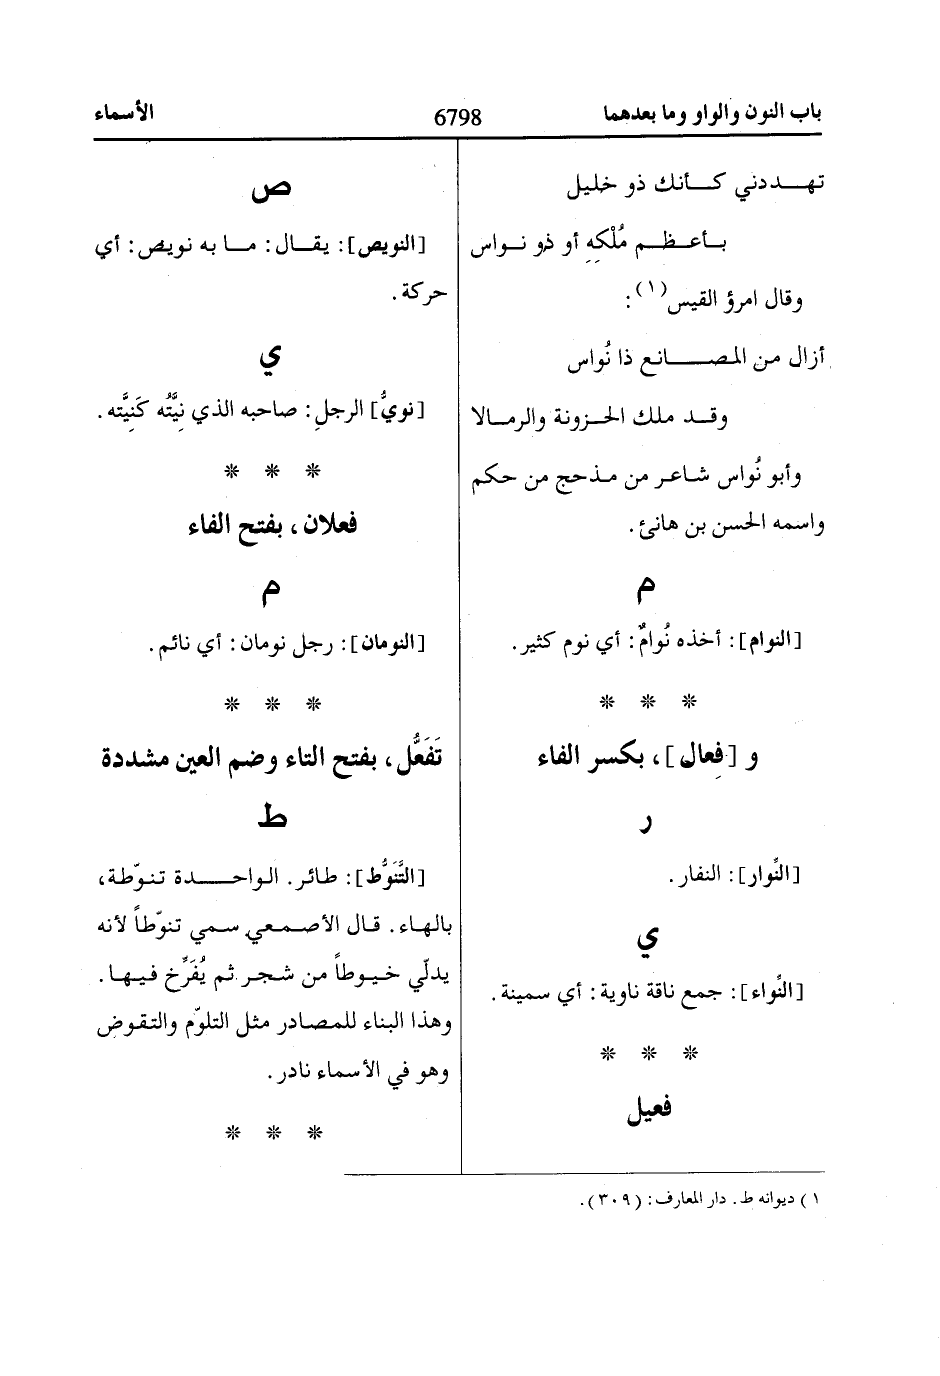 باب النون والواو وما بعدهما 6798 الأسماء
تهددني كأنك ذو خليل
بأعظم مُلْكِهِ أو ذو نواس
وقال امرؤ القيس(١):
أزال من المصانع ذا نُواس
وقد ملك الحزونة والرمالا
وأبو نُواس شاعر من مذحج من حكم
واسمه الحسن بن هانئ.
م
[النوام]: أخذه نُوامٌ: أي نوم كثير.
* * *
و [فِعال]، بكسر الفاء
ر
[النِّوار]: النفار.
ي
[النِّواء]: جمع ناقة ناوية: أي سمينة.
* * *
فعيل
ص
[النويص]: يقال: ما به نويص: أي
حركة.
ي
[نويُّ] الرجلِ: صاحبه الذي نِيَّتُه كَنِيَّتِه.
* * *
فعلان، بفتح الفاء
م
[النومان]: رجل نومان: أي نائم.
* * *
تَفَعُّل، بفتح التاء وضم العين مشددة
ط
[التَّنَوُّط]: طائر. الواحدة تنوّطة،
بالهاء. قال الأصمعي سمي تنوّطاً لأنه
يدلّي خيوطاً من شجر ثم يُفَرِّخ فيها.
وهذا البناء للمصادر مثل التلوّم والتقوض
وهو في الأسماء نادر.
* * *
١) ديوانه ط. دار المعارف: (٣٠٩).